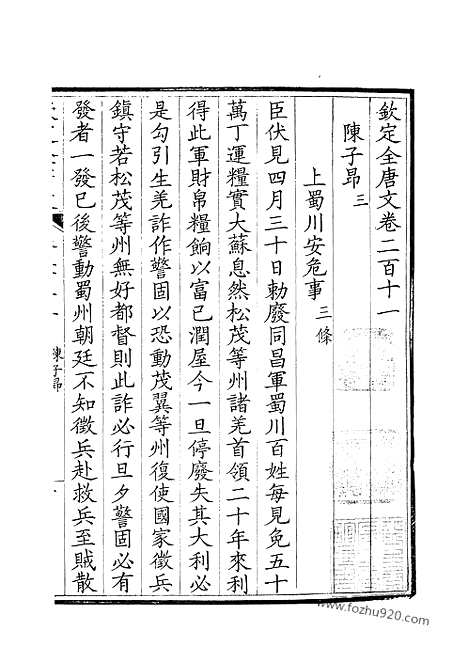 欽定全唐文卷二百十一
陳子昂三
上蜀川安危事三條
臣伏見四月三十日勅廢同昌軍蜀川百姓每見免五十
萬丁運糧實大蘇息然松茂等州諸羌首領二十年來利
得此軍財帛糧餉以富己潤屋今一旦停廢失其大利必
是勾引生羌詐作警固以恐動茂翼等州復使國家徵兵
鎮守若松茂等州無好都督則此詐必行旦夕警固必有
發者一發已後警動蜀州朝廷不知徵兵赴救兵至賊散
陳子昂
www.fozhu920.com